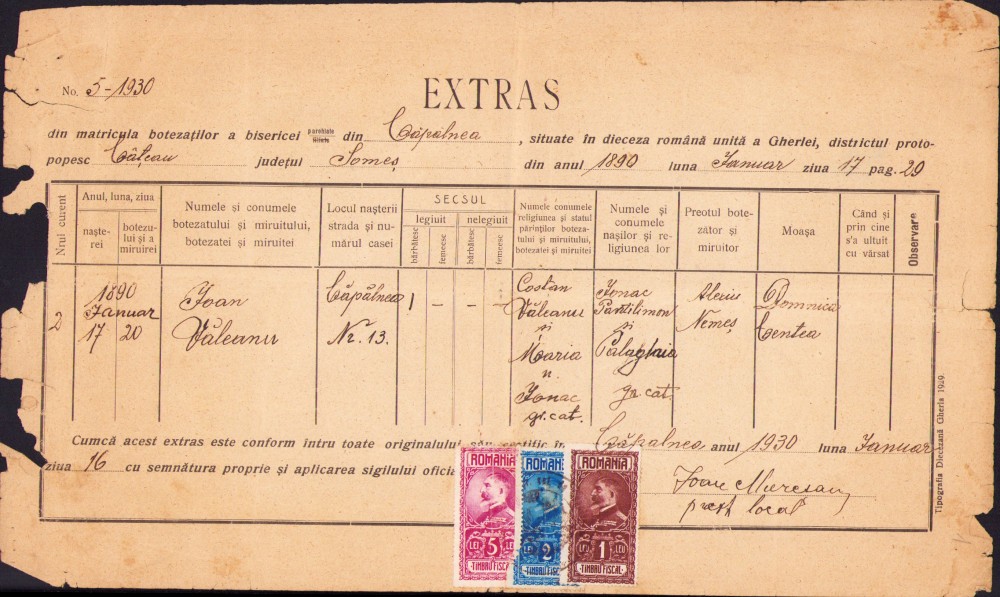 No. 5-1930
EXTRAS
din matricula botezaților a bisericei parohiale filiale din Căpâlnea, situate în dieceza română unită a Gherlei, districtul proto-
popesc Câțcau județul Someș din anul 1890 luna Januar ziua 17 pag. 29
Nrul curent
Anul, luna, ziua
naște-
rei
botezu-
lui și a
miruirei
Numele și conumele
botezatului și miruitului,
botezatei și miruitei
Locul nașterii
strada și nu-
mărul casei
SECSUL
legiuit
nelegiuit
bărbătesc
femeesc
bărbătesc
femeesc
Numele conumele
religiunea și statul
părinților boteza-
tului și miruitului,
botezatei și miruitei
Numele și
conumele
nașilor și re-
ligiunea lor
Preotul bote-
zător și
miruitor
Moașa
Când și
prin cine
s'a ultuit
cu vărsat
Observare
2
1890
Januar
17 20
Ioan
Văleanu
Căpâlnea
Nr. 13.
1 - - -
Costan
Văleanu
și
Maria
n.
Ionac
gr. cat.
Ionac
Pantilimon
și
Palaghia
gr. cat.
Alexiu
Nemeș
Domnica
Centea
Cumcă acest extras este conform întru toate originalului, în Căpalnea, anul 1930 luna Januar
ziua 16 cu semnătura proprie și aplicarea sigilului
Ioan Muresan
local
ROMANIA
LEI 5 LEI
TIMBRU FISCAL
ROMANIA
LEI 2
TIMBRU FISCAL
ROMANIA
LEI 1 LEI
TIMBRU FISCAL
Tipografia Diecezană Gherla 1929.